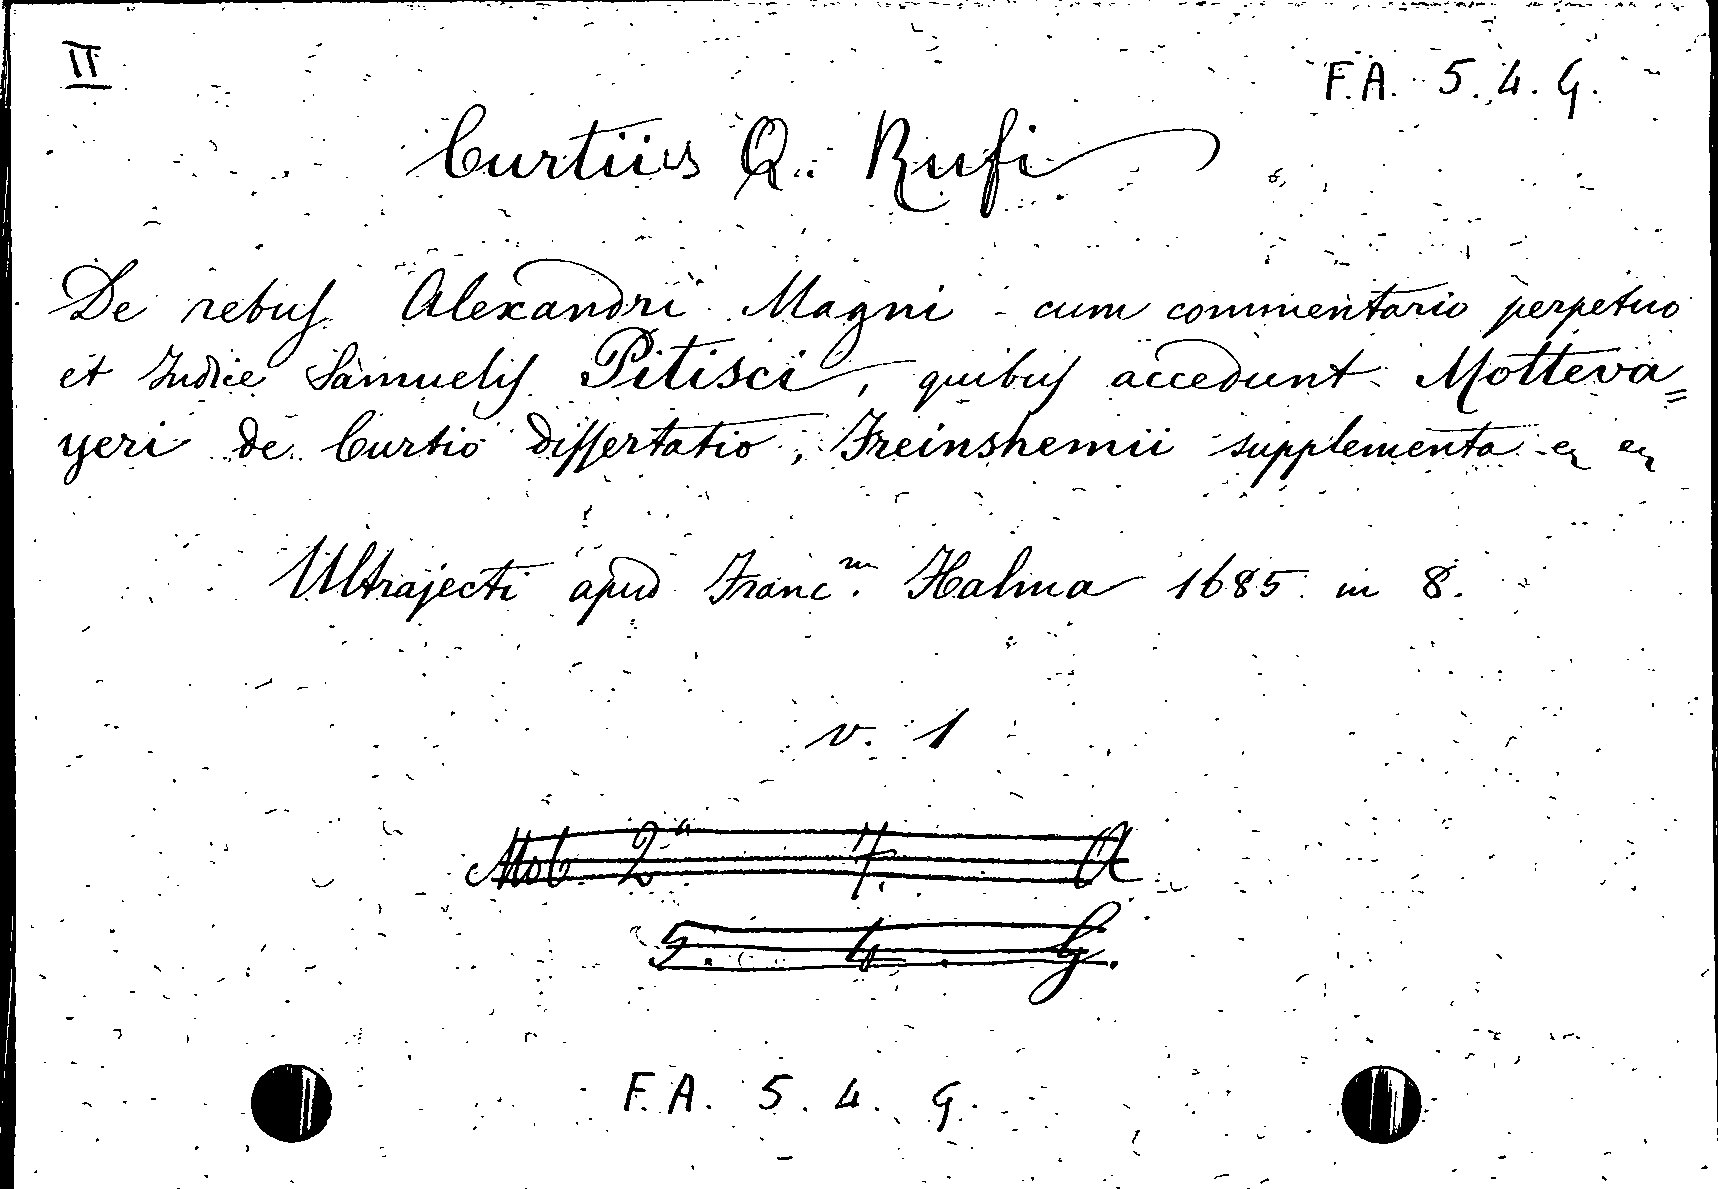 II
F.A. 5.4.G.
Curtius Q. Rufi
De rebus Alexandri Magni - cum commentario perpetuo
et Indice Samuelis Pitisci, quibus accedunt Motteva=
yeri de Curtio dissertatio, Freinshemii supplementa
Ultrajecti apud Franc.m Halma 1685 in 8.
v. 1
Mob 2a 7. A
5. 4. G.
F.A. 5. 4. G.